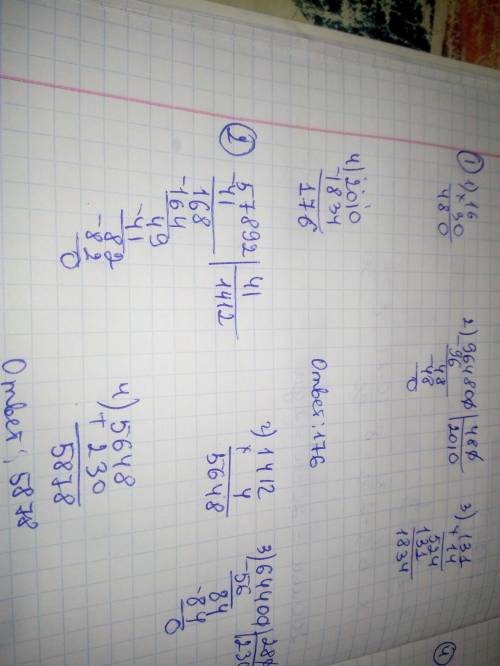 ① 1) 16
×30
480
2) 964800 | 480
-96 | 2010
48
-48
0
3) 131
×14
524
131
1834
4) 2010
-1834
176
Ответ: 176
② 57892 | 41
-41 | 1412
168
-164
49
-41
82
-82
0
2) 1412
× 4
5648
3) 64400 | 280
-56
84
-84
0
4) 5648
+ 230
5878
Ответ: 5878